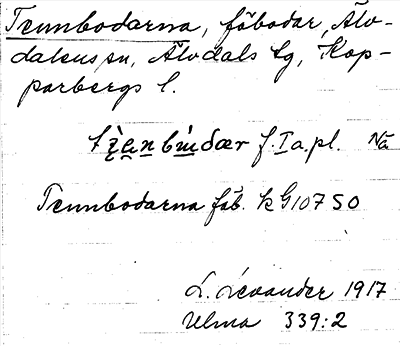 Tennbodarna, fäbodar, Älv-
dalens sn, Älvdals tg, Kop-
parbergs l.
f. I a. pl. Nä
Tennbodarna fäb. k G107 SO
L. Levander 1917
Ulma 339:2